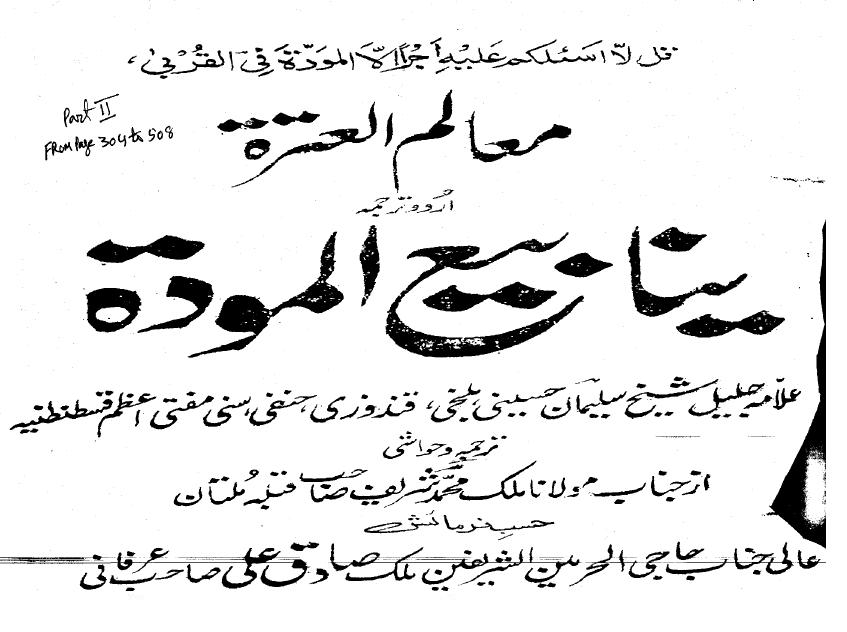 قل لّا اسئلکم علیہِ اَجْراً اِلّا المودّۃَ فِی القُرْبٰی،
Part II
From Page 304 to 508
معالم العترۃ
اُردو ترجمہ
ینابیع المودۃ
علّامہ جلیل شیخ سلیمان حسینی، بلخی، قندوزی، حنفی، سنی مفتی اعظم قسطنطنیہ
ترجمہ و حواشی
از جناب مولانا ملک محمّد شریف صاحب قبلہ مُلتان
حسبِ فرمائش
عالی جناب حاجی الحرمین الشریفین ملک صادق علی صاحب عرفانی